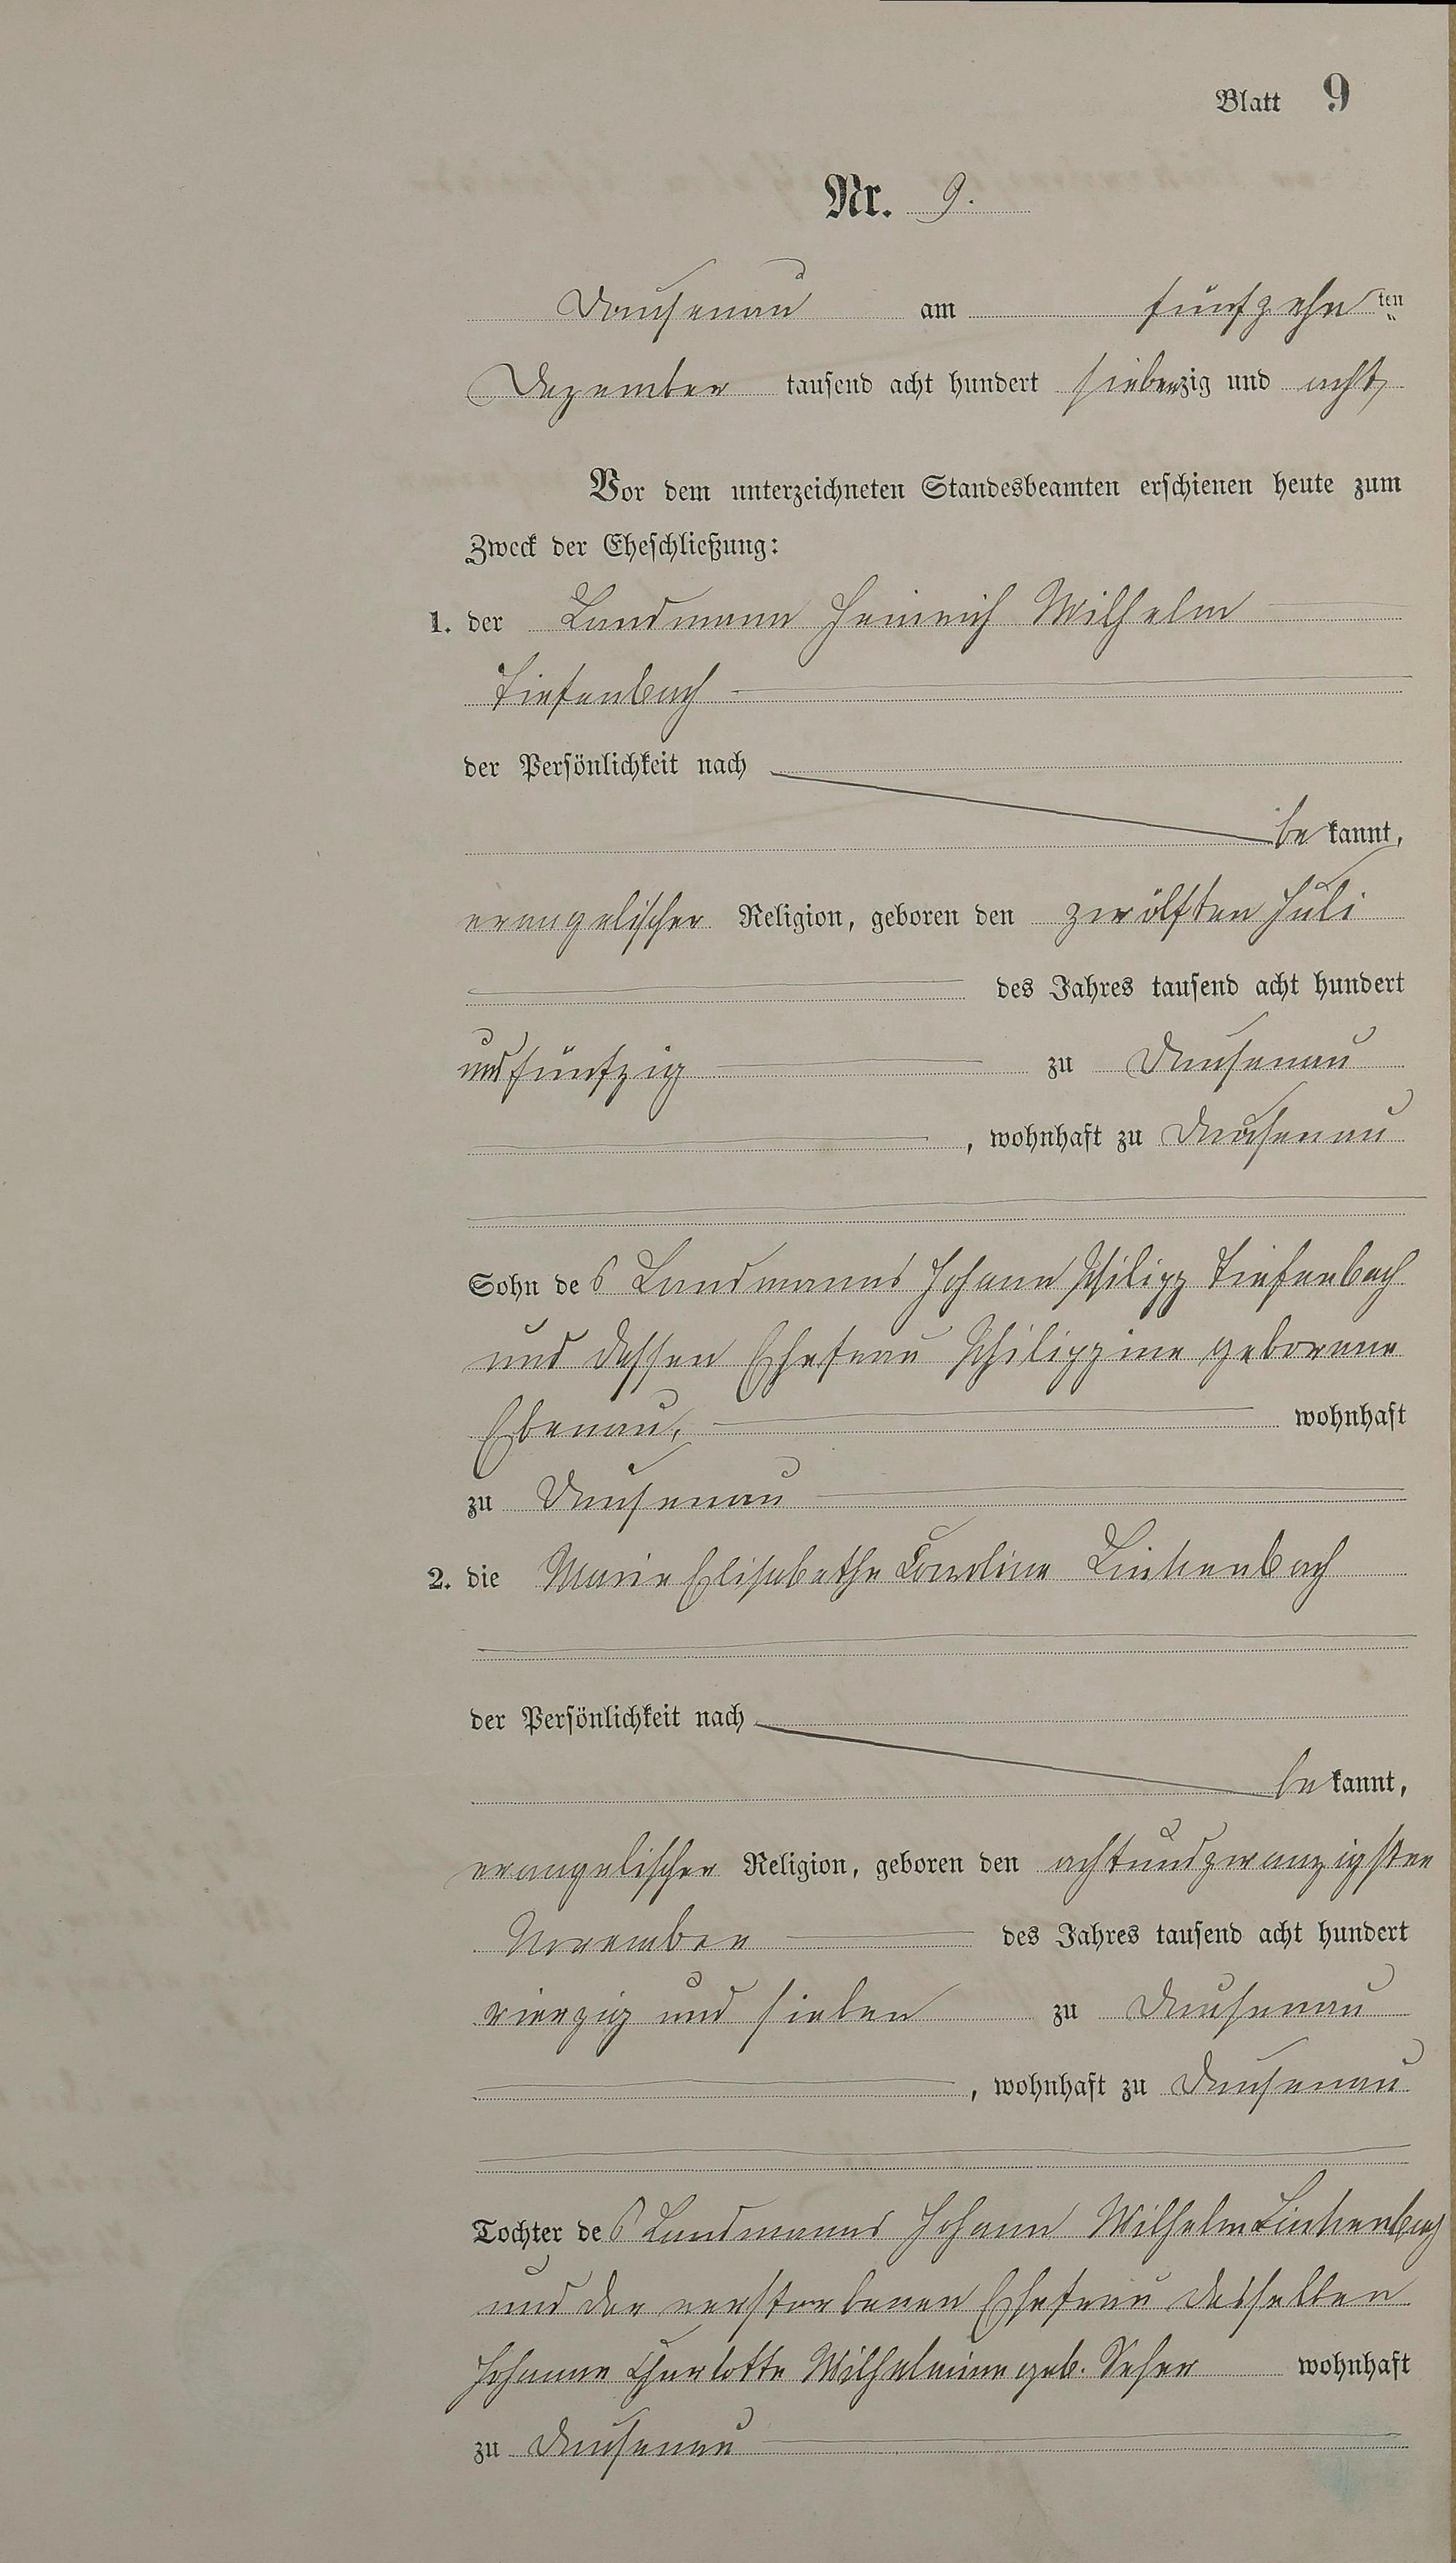 Blatt 9
Nr. 9.
Dausenau am fünfzehnten
Dezember tausend acht hundert siebenzig und acht
Vor dem unterzeichneten Standesbeamten erschienen heute zum
Zweck der Eheschließung:
1. der Landmann Heinrich Wilhelm
Tiefenbach
der Persönlichkeit nach
bekannt,
evangelischer Religion, geboren den zwölften Juli
des Jahres tausend acht hundert
und fünfzig zu Dausenau
, wohnhaft zu Dausenau
Sohn des Landmanns Johann Philipp Tiefenbach
und dessen Ehefrau Philippine geborene
Ebenau, wohnhaft
zu Dausenau
2. die Marie Elisabethe Caroline Linkenbach
der Persönlichkeit nach
bekannt,
evangelischer Religion, geboren den achtundzwanzigsten
November des Jahres tausend acht hundert
vierzig und sieben zu Dausenau
, wohnhaft zu Dausenau
Tochter des Landmanns Johann Wilhelm Linkenbach
und der verstorbenen Ehefrau desselben
Johanne Charlotte Wilhelmine geb. wohnhaft
zu Dausenau